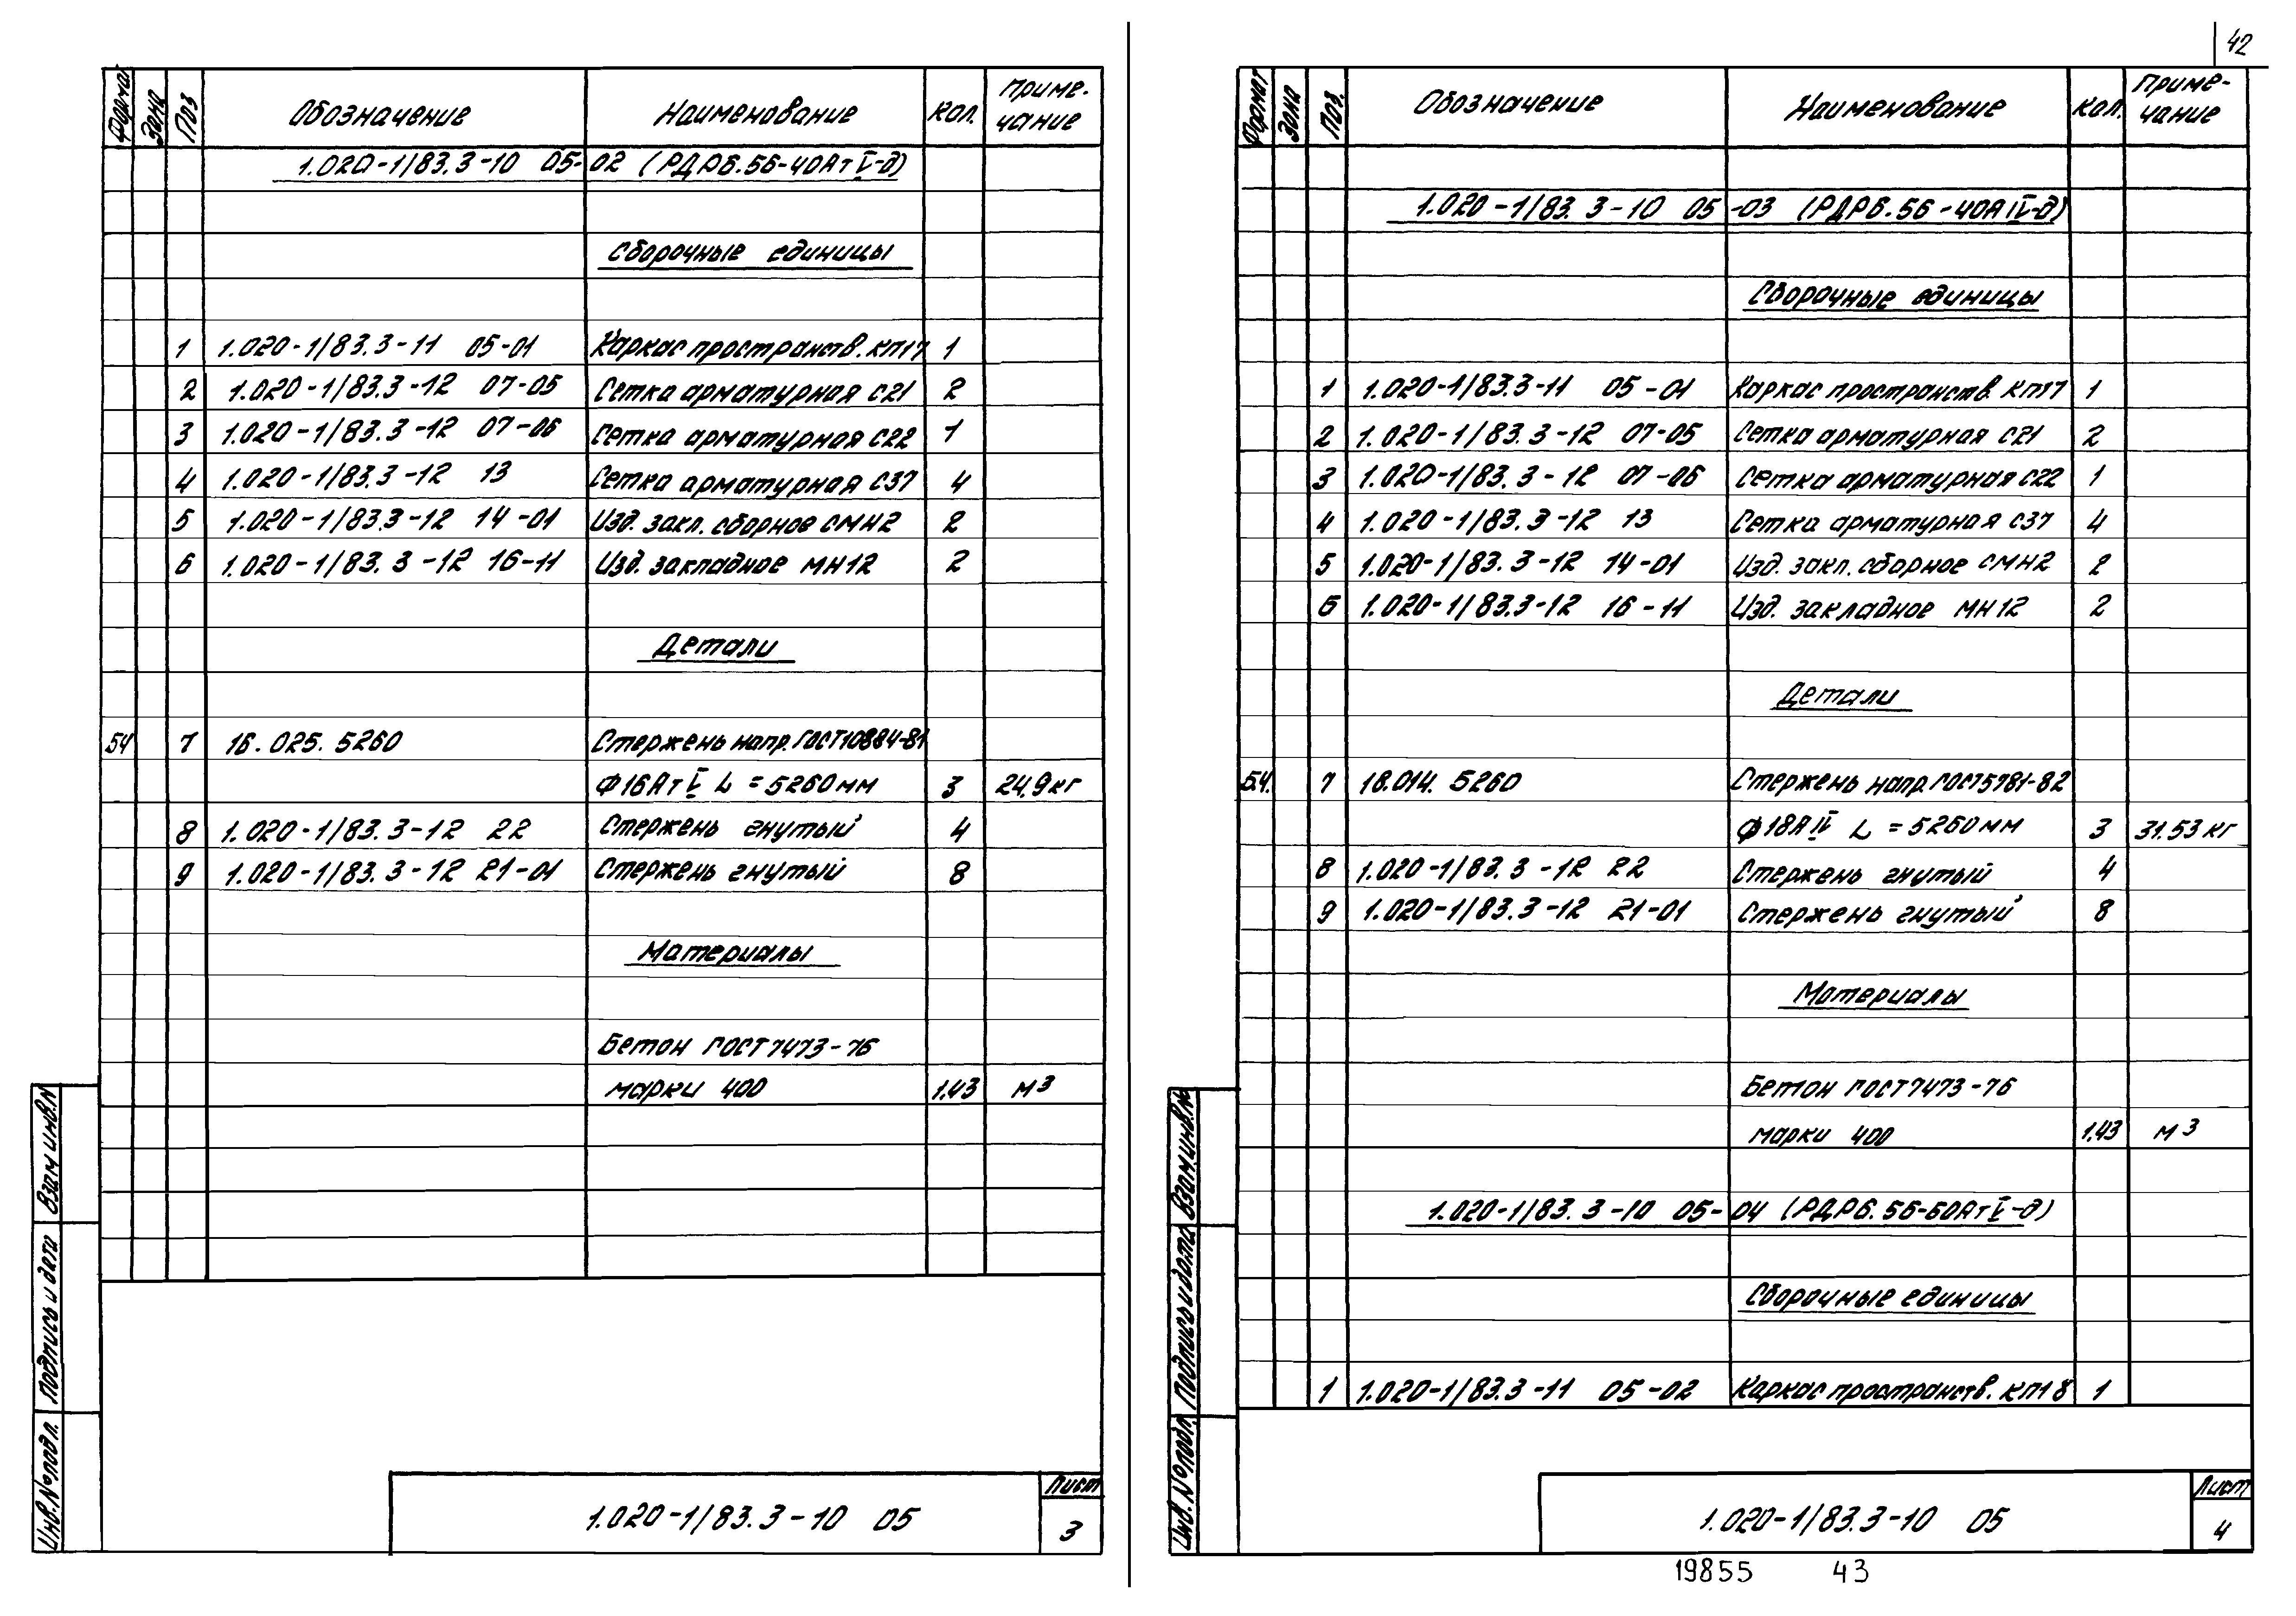 42
Формат Зона Поз Обозначение Наименование Кол. Приме-чание
1.020-1/83.3-10 05-02 (РДР6.56-40АтV-д)
Сборочные единицы
1 1.020-1/83.3-11 05-01 Каркас пространств. КП17 1
2 1.020-1/83.3-12 07-05 Сетка арматурная С21 2
3 1.020-1/83.3-12 07-06 Сетка арматурная С22 1
4 1.020-1/83.3-12 13 Сетка арматурная С37 4
5 1.020-1/83.3-12 14-01 Изд. закл. сборное СМН2 2
6 1.020-1/83.3-12 16-11 Изд. закладное МН12 2
Детали
БЧ 7 16.025.5260 Стержень напр. ГОСТ10884-81
Ф16АтV L=5260мм 3 24,9кг
8 1.020-1/83.3-12 22 Стержень гнутый 4
9 1.020-1/83.3-12 21-01 Стержень гнутый 8
Материалы
Бетон ГОСТ7473-76
марки 400 1.43 м3
Взам инв.N
Подпись и дата
Инв.№подл.
1.020-1/83.3-10 05
Лист
3
Формат Зона Поз. Обозначение Наименование Кол. Приме-чание
1.020-1/83.3-10 05-03 (РДР6.56-40АIV-д)
Сборочные единицы
1 1.020-1/83.3-11 05-01 Каркас пространств. КП17 1
2 1.020-1/83.3-12 07-05 Сетка арматурная С21 2
3 1.020-1/83.3-12 07-06 Сетка арматурная С22 1
4 1.020-1/83.3-12 13 Сетка арматурная С37 4
5 1.020-1/83.3-12 14-01 Изд. закл. сборное СМН2 2
6 1.020-1/83.3-12 16-11 Изд. закладное МН12 2
Детали
БЧ. 7 18.014.5260 Стержень напр. ГОСТ5781-82
Ф18АIV L=5260мм 3 31.53 кг
8 1.020-1/83.3-12 22 Стержень гнутый 4
9 1.020-1/83.3-12 21-01 Стержень гнутый 8
Материалы
Бетон ГОСТ7473-76
марки 400 1.43 м3
1.020-1/83.3-10 05-04 (РДР6.56-50АтV-д)
Сборочные единицы
1 1.020-1/83.3-11 05-02 Каркас пространств. КП18 1
Взам.инв.№
Подпись и дата
Инв.№подл.
1.020-1/83.3-10 05
Лист
4
19855 43